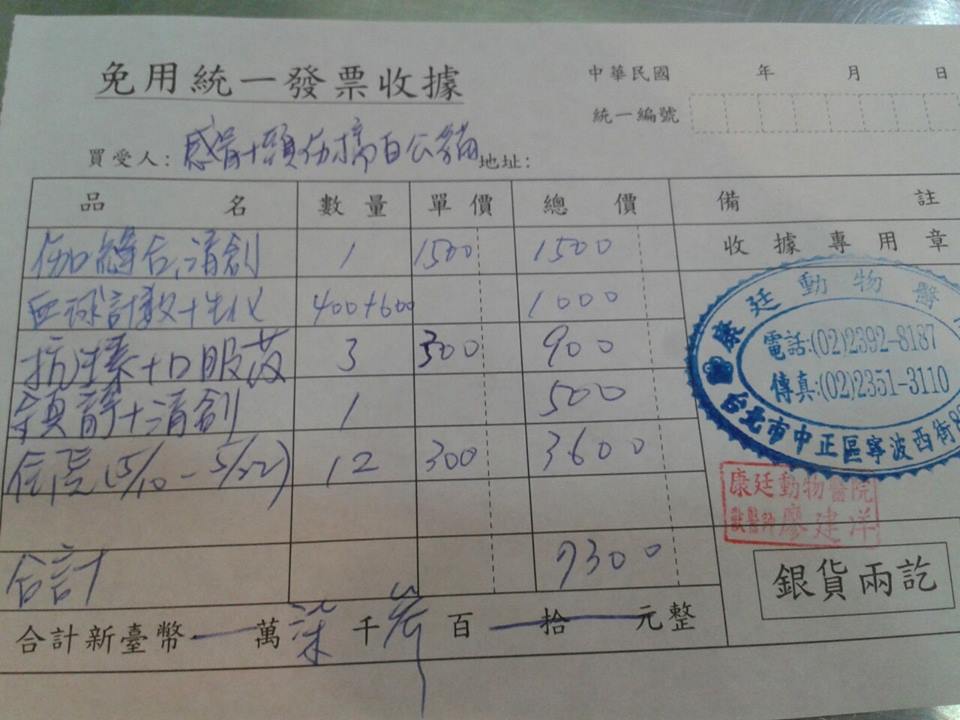 免用統一發票收據
中華民國 年 月 日
統一編號
買受人: 感冒+頭傷橘白公貓 地址:
品 名 數量 單價 總 價 備 註
傷口縫合,清創 1 1500 1500 收據專用章
血球計數+生化 400+600 1000
抗生素+口服藥 3 300 900
鎮靜+清創 1 500
住院(5/10-5/22) 12 300 3600
康廷動物醫
電話:(02)2392-8187
傳真:(02)2351-3110
台北市中正區寧波西街
康廷動物醫院
獸醫師 廖建洋
合計 7300
銀貨兩訖
合計新臺幣 萬 柒 千 參 百 拾 元整